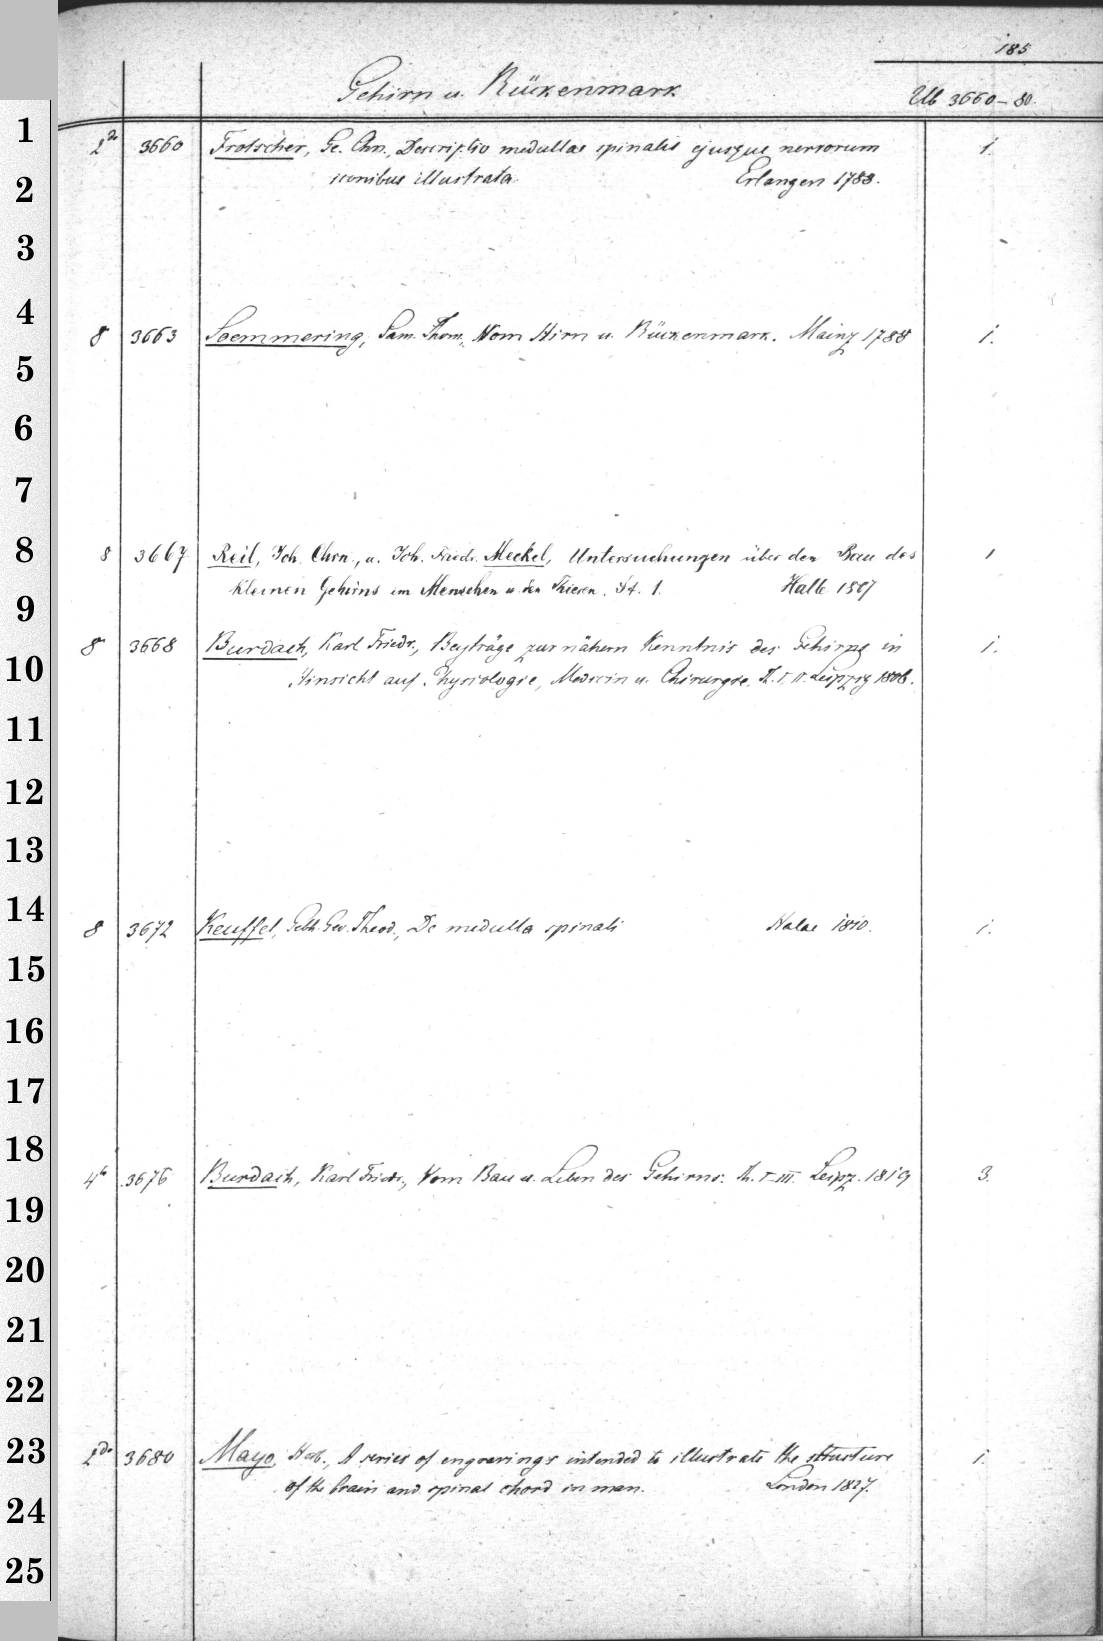 185
Gehirn u. Rückenmark
Ub 3660-80.
1
2
3
4
5
6
7
8
9
10
11
12
13
14
15
16
17
18
19
20
21
22
23
24
25
3660 Frotscher, Ge. Chn., Descriptio medullae spinalis ejusque nervorum 1.
iconibus illustrata. Erlangen 1788.
8 3663 Soemmering, Sam. Thom., Vom Hirn u. Rückenmark. Mainz 1788 1.
8 3667 Reil, Joh. Chrn., u. Joh. Friedr. Meckel, Untersuchungen über den Bau des 1
kleinen Gehirns im Menschen u. den Thieren. St. 1. Halle 1807
8 3668 Burdach, Karl Friedr., Beyträge zur nähern Kenntnis des Gehirns in 1.
Hinsicht auf Physiologie, Medicin u. Chirurgie. Th. I. II. Leipzig 1806.
8 3672 Keuffel, Gothi. Theod., De medulla spinali Halae 1810. 1.
4to 3676 Burdach, Karl Friedr., Vom Bau u. Leben des Gehirns. Th. I-III. Leipz. 1819 3.
3680 Mayo, Herb., A series of engravings intended to illustrate the structure 1.
of the brain and spinal chord in man. London 1827.